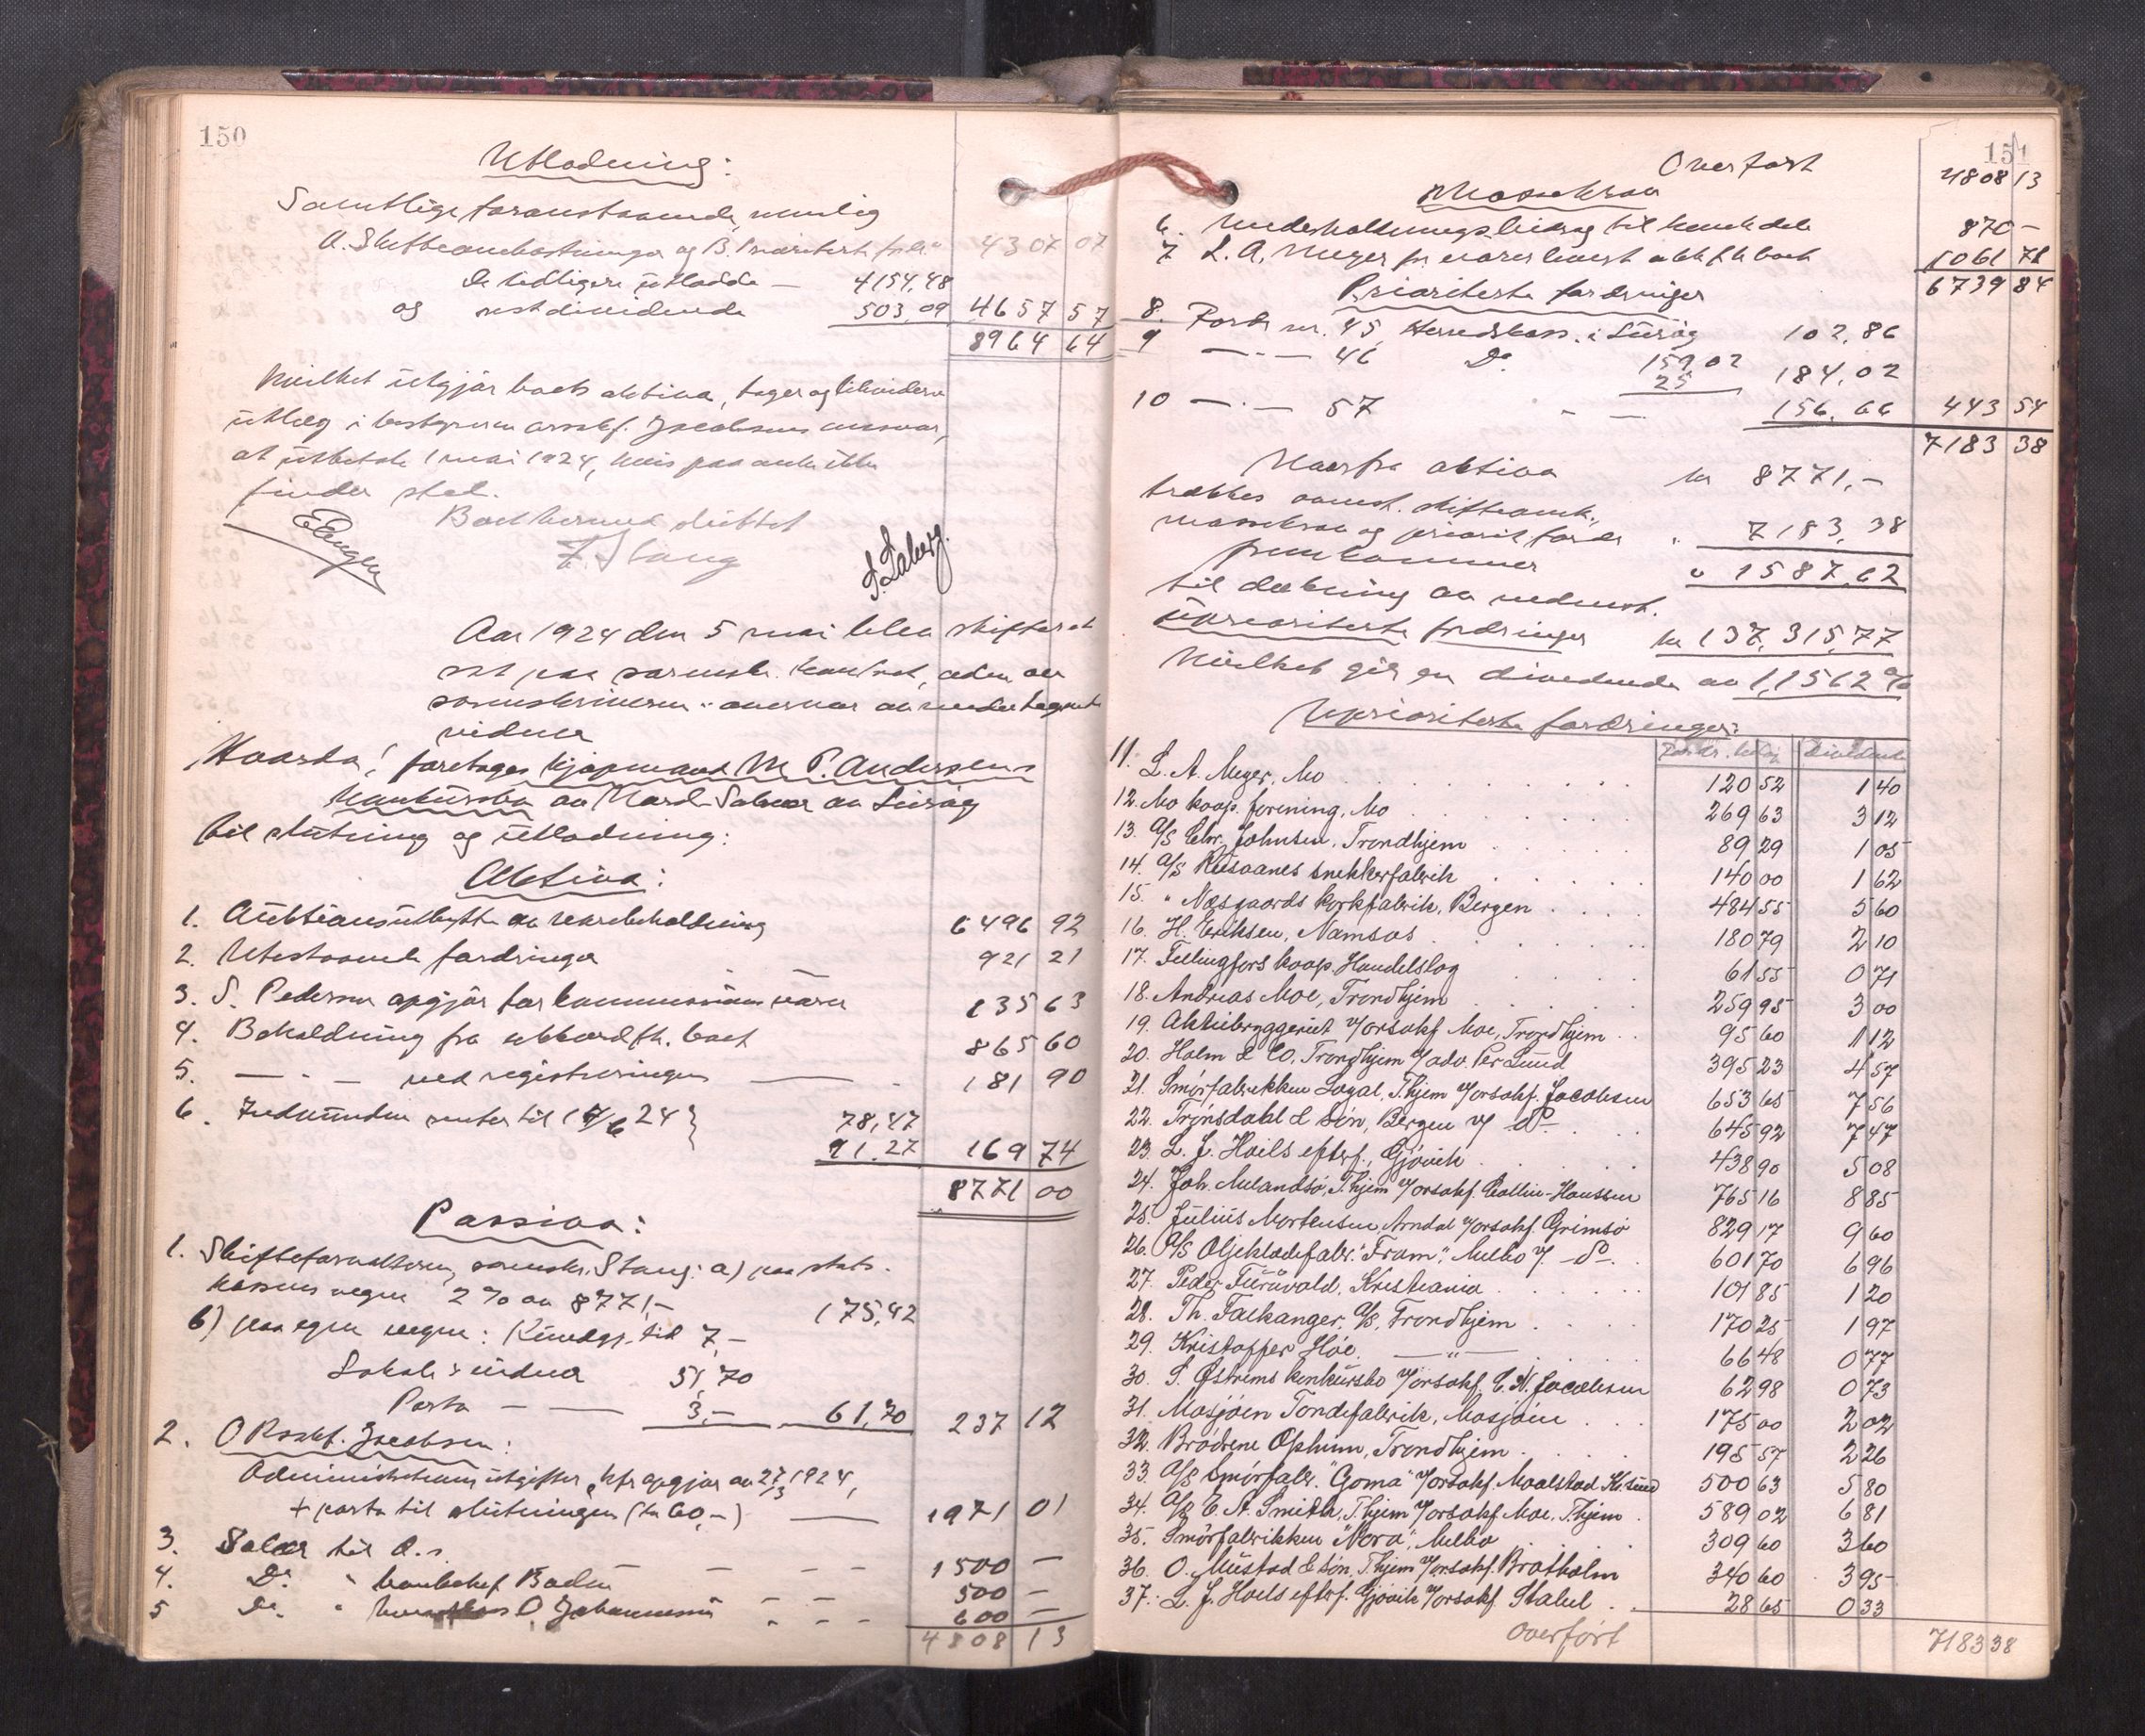 150
Utlodning:
Samtlige foranstaaende, nemlig
A. Skifteomkostninger og B. Prioritert ford. 4307 07
De tidligere utlodde — 4154,48
og restdividende 503,09 4657 57
8964 64
hvilket utgjør boets aktiva, tages og likvideres
utlæg i bestyreren orsakf. Jacobsens ansvar,
at utbetale 1 mai 1924, hvis paaanke ikke
finder sted.
Boet dermed sluttet
EEngen F. Stang S. Laberg.
Aar 1924 den 5 mai blev skifteret
sat paa sorenskr. kontoret, ledet av
sorenskriveren i overvær av undertegnede
vidner
Hvorda! foretoges kjøpmand M. P. Andersens
konkursbo av Nord-Solvær av Lurøy
til slutning og utlodning:
Aktiva:
1. Auktionsutbytte av varebeholdning 6496 92
2. Utestaaende fordringer 921 21
3. S. Pedersen opgjør for kommissionsvarer 135 63
4. Beholdning fra abbordth. boet 865 60
5. — " — ved registreringen — 181 90
6. Indvundne renter til 15/6 24} 78,47
91.27 169 74
8771 00
Passiva:
1. Skifteforvalteren, sorenskr. Stang: a) paa stats-
kassens vegne 2% av 8771,— 175,42
b) paa egne vegne: Kundgj. tid 7,—
Lokale & vidner 51,70
Porto — — 3,— 61,70 237 12
2. O.Rsakf. Jacobsen:
Administrationsutgifter, kfr opgjør av 27/3 1924,
+ porto til slutningen (kr 60,—) — 1971 01
3. Salær til D.s. 1500 —
4. Do. " banksjef Bodin 500 —
5 Do. " O. Johannessen 600 —
4808 13
151
Overført 4808 13
Massekrav
6. Underholdningsbidrag til 870 —
7 L. A. Meyer for varer levert boet 1061 71
6739 84
Prioriterte fordringer
8. Fordr nr. 45, Herredskass. i Lurøy 102,86
9 — " — 46 Do. 159,02
25 184,02
10 — " — 57 " — 156,66 443 54
7183 38
Naar fra aktiva kr 8771,—
trækkes ovenst. skifteomk.,
massekrav og priorit. fordr. " 7183,38
fremkommer " 1587,62
til dækning av nedenst.
uprioriterte fordringer kr 137,315,77
hvilket gir en dividende av 1,1562%
Uprioriterte fordringer:
Fordr. beløp Dividende
11. L. A. Meyer, Mo 120 52 1 40
12. Mo koop. forening, Mo 269 63 3 12
13. A/S Chr. Johnsen, Trondhjem 89 29 1 05
14. A/S Rusaanes snekkerfabrik 140 00 1 62
15. " Næsgaards korkfabrik, Bergen 484 55 5 60
16. H. Eriksen, Namsos 180 79 2 10
17. Fellingfors koop. Handelslag 61 55 0 71
18. Andreas Moe, Trondhjem 259 95 3 00
19. Aktiebryggeriet v/orsakf. Moe, Trondhjem 95 60 1 12
20. Holm & Co, Trondhjem v/adv. Per Lund 395 23 4 57
21. Smørfabrikken Loyal, T.hjem v/orsakf. Jacobsen 653 65 7 56
22. Trønsdahl & Søn, Bergen v/ do 645 92 7 47
23. L. J. Hoels efterf., Gjøvik 438 90 5 08
24. Joh. Melandsø, T.hjem v/orsakf. Collin-Hanssen 765 16 8 85
25. Julius Mortensen Arndal v/orsakf. Grimsø 829 17 9 60
26. A/S Oljeklædefabr. "Fram", Melbo v/ do 601 70 6 96
27. Peder Furuvald, Kristiania 101 85 1 20
28. Th. Falkanger, A/S, Trondhjem 170 25 1 97
29. Kristoffer Høe. — " — 66 48 0 77
30. S. Østrems konkursbo v/orsakf. C. N. Jacobsen 62 98 0 73
31. Mosjøen Tøndefabrik, Mosjøen 175 00 2 02
32. Brødrene Ophum, Trondhjem 195 57 2 26
33. A/S Smørfabr. "Goma" v/orsakf. Maalstad Kr.sund 500 63 5 80
34. A/S E. A. Smith, T.hjem v/orsakf. Moe, T.hjem 589 02 6 81
35. Smørfabrikken "Nora", Melbo 309 60 3 60
36. O. Mustad & Søn, T.hjem v/orsakf. Bratholm 340 60 3 95
37. L. J. Hoels efterf. Gjøvik v/orsakf. Stabel 28 65 0 33
overført 7183 38